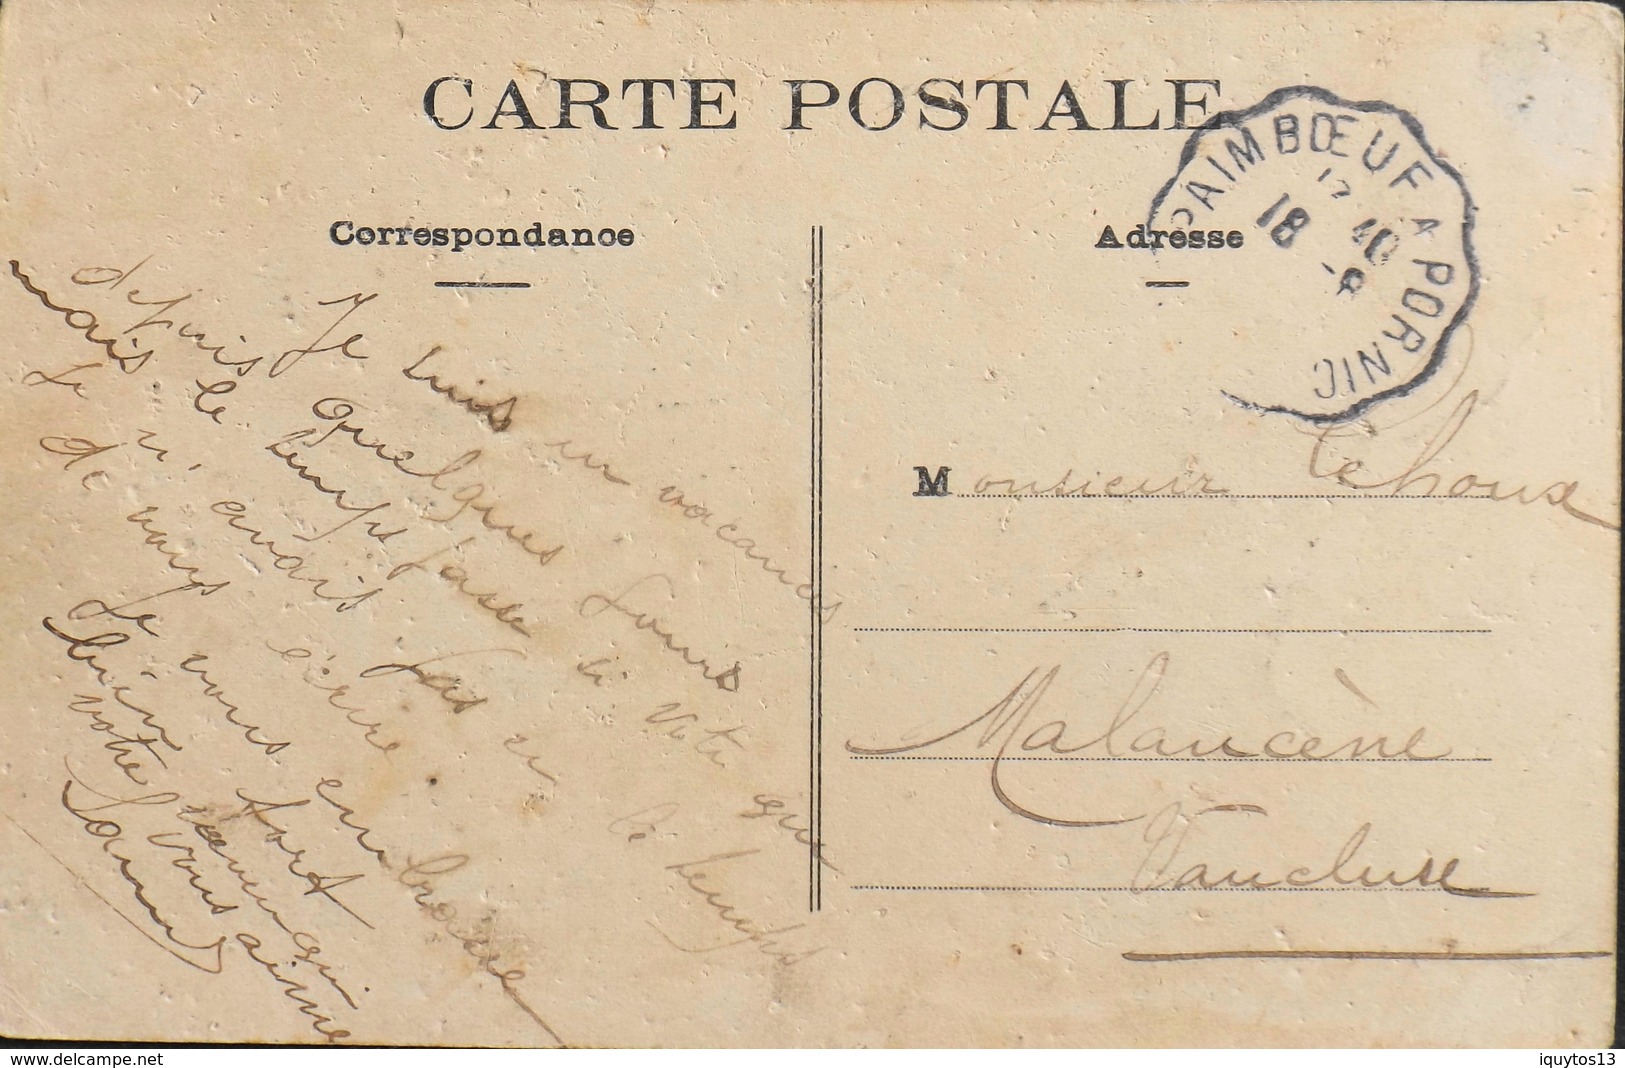 CARTE POSTALE
PAIMBŒUF A PORNIC
18
Correspondance
Adresse
Je suis en vacances
depuis quelques jours
mais le temps passe si vite que
je n'avais pas eu le temps
de vous écrire.
Je vous embrasse
bien fort
votre neveu qui
vous aime
Monsieur Lehoux
Malaucène
Vaucluse
www.delcampe.net
iquytos13